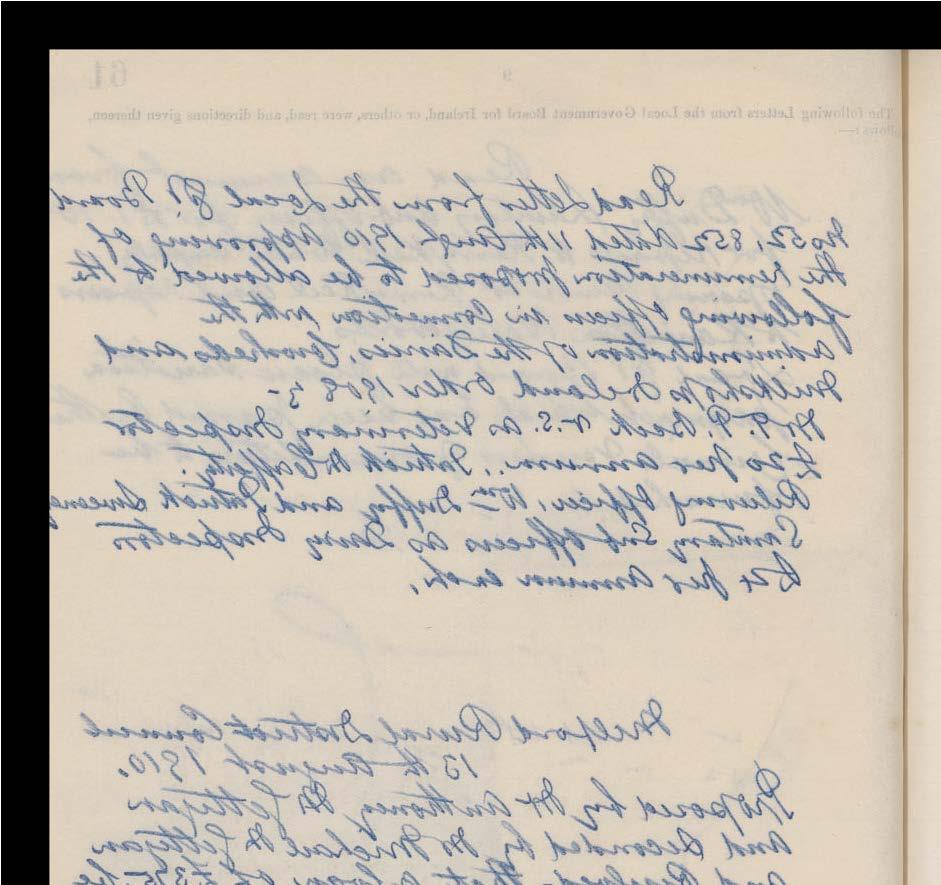 61
9
The following Letters from the Local Government Board for Ireland, or others, were read, and directions given thereon,
follows :—
Read Letter from the Local Gt. Board
No 52,852 dated 11th Augt 1910 Approving of
the remuneration proposed to be allowed to the
following Officers in Connection with the
administration of the Dairies, Cowsheds and
Milkshops Ireland Order 1908 :-
Mr P. Beck V.S. as Veterinary Inspector
£20 per annum. Patrick McCafferty.
Relieving Officer, Wm Duffy and Patrick Sweeney
Sanitary Sub Officers as Dairy Inspectors
£4 per annum each.
Milford Rural District Council
13th August 1910.
Proposed by Mr Anthony McGettigan
and Seconded by Mr Michael McGettigan
and Resolved: That a loan of £375 be